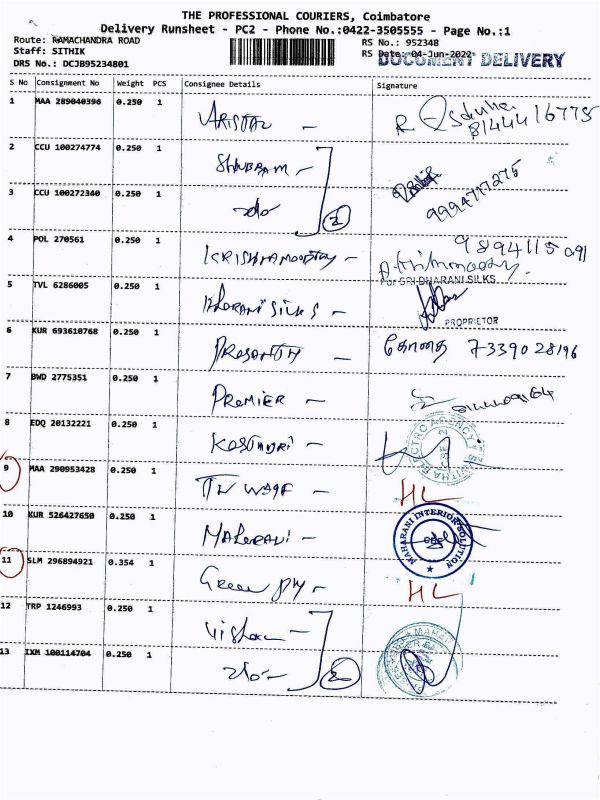 THE PROFESSIONAL COURIERS, Coimbatore
Delivery Runsheet - PC2 - Phone No.:0422-3505555 - Page No.:1
Route: RAMACHANDRA ROAD
RS No.: 952348
Staff: SITHIK
RS Date: 04-Jun-2022
DOCUMENT DELIVERY
DRS No.: DCJB95234801
S No Consignment No Weight PCS Consignee Details Signature
1 MAA 289040396 0.250 1
81444 16775
2 CCU 100274774 0.250 1 SHUBRAM -
3 CCU 100272340 0.250 1 2
9994717275
4 POL 270561 0.250 1 KRISHNAMOORTHY -
9894115091
5 TVL 6286005 0.250 1 DHARANI SILKS -
For SRI DHARANI SILKS
PROPRIETOR
6 KUR 693610768 0.250 1 PRASANTH - கோதை 7339028196
7 BWD 2775351 0.250 1 PREMIER -
8 EDQ 20132221 0.250 1 KASTHURI -
9 MAA 290953428 0.250 1 HL
10 KUR 526427650 0.250 1 MAHARANI -
MAHARANI INTERIOR SOLUTION
11 SLM 296894921 0.354 1 Green ply - HL
12 TRP 1246993 0.250 1
13 IXM 100114704 0.250 1 2